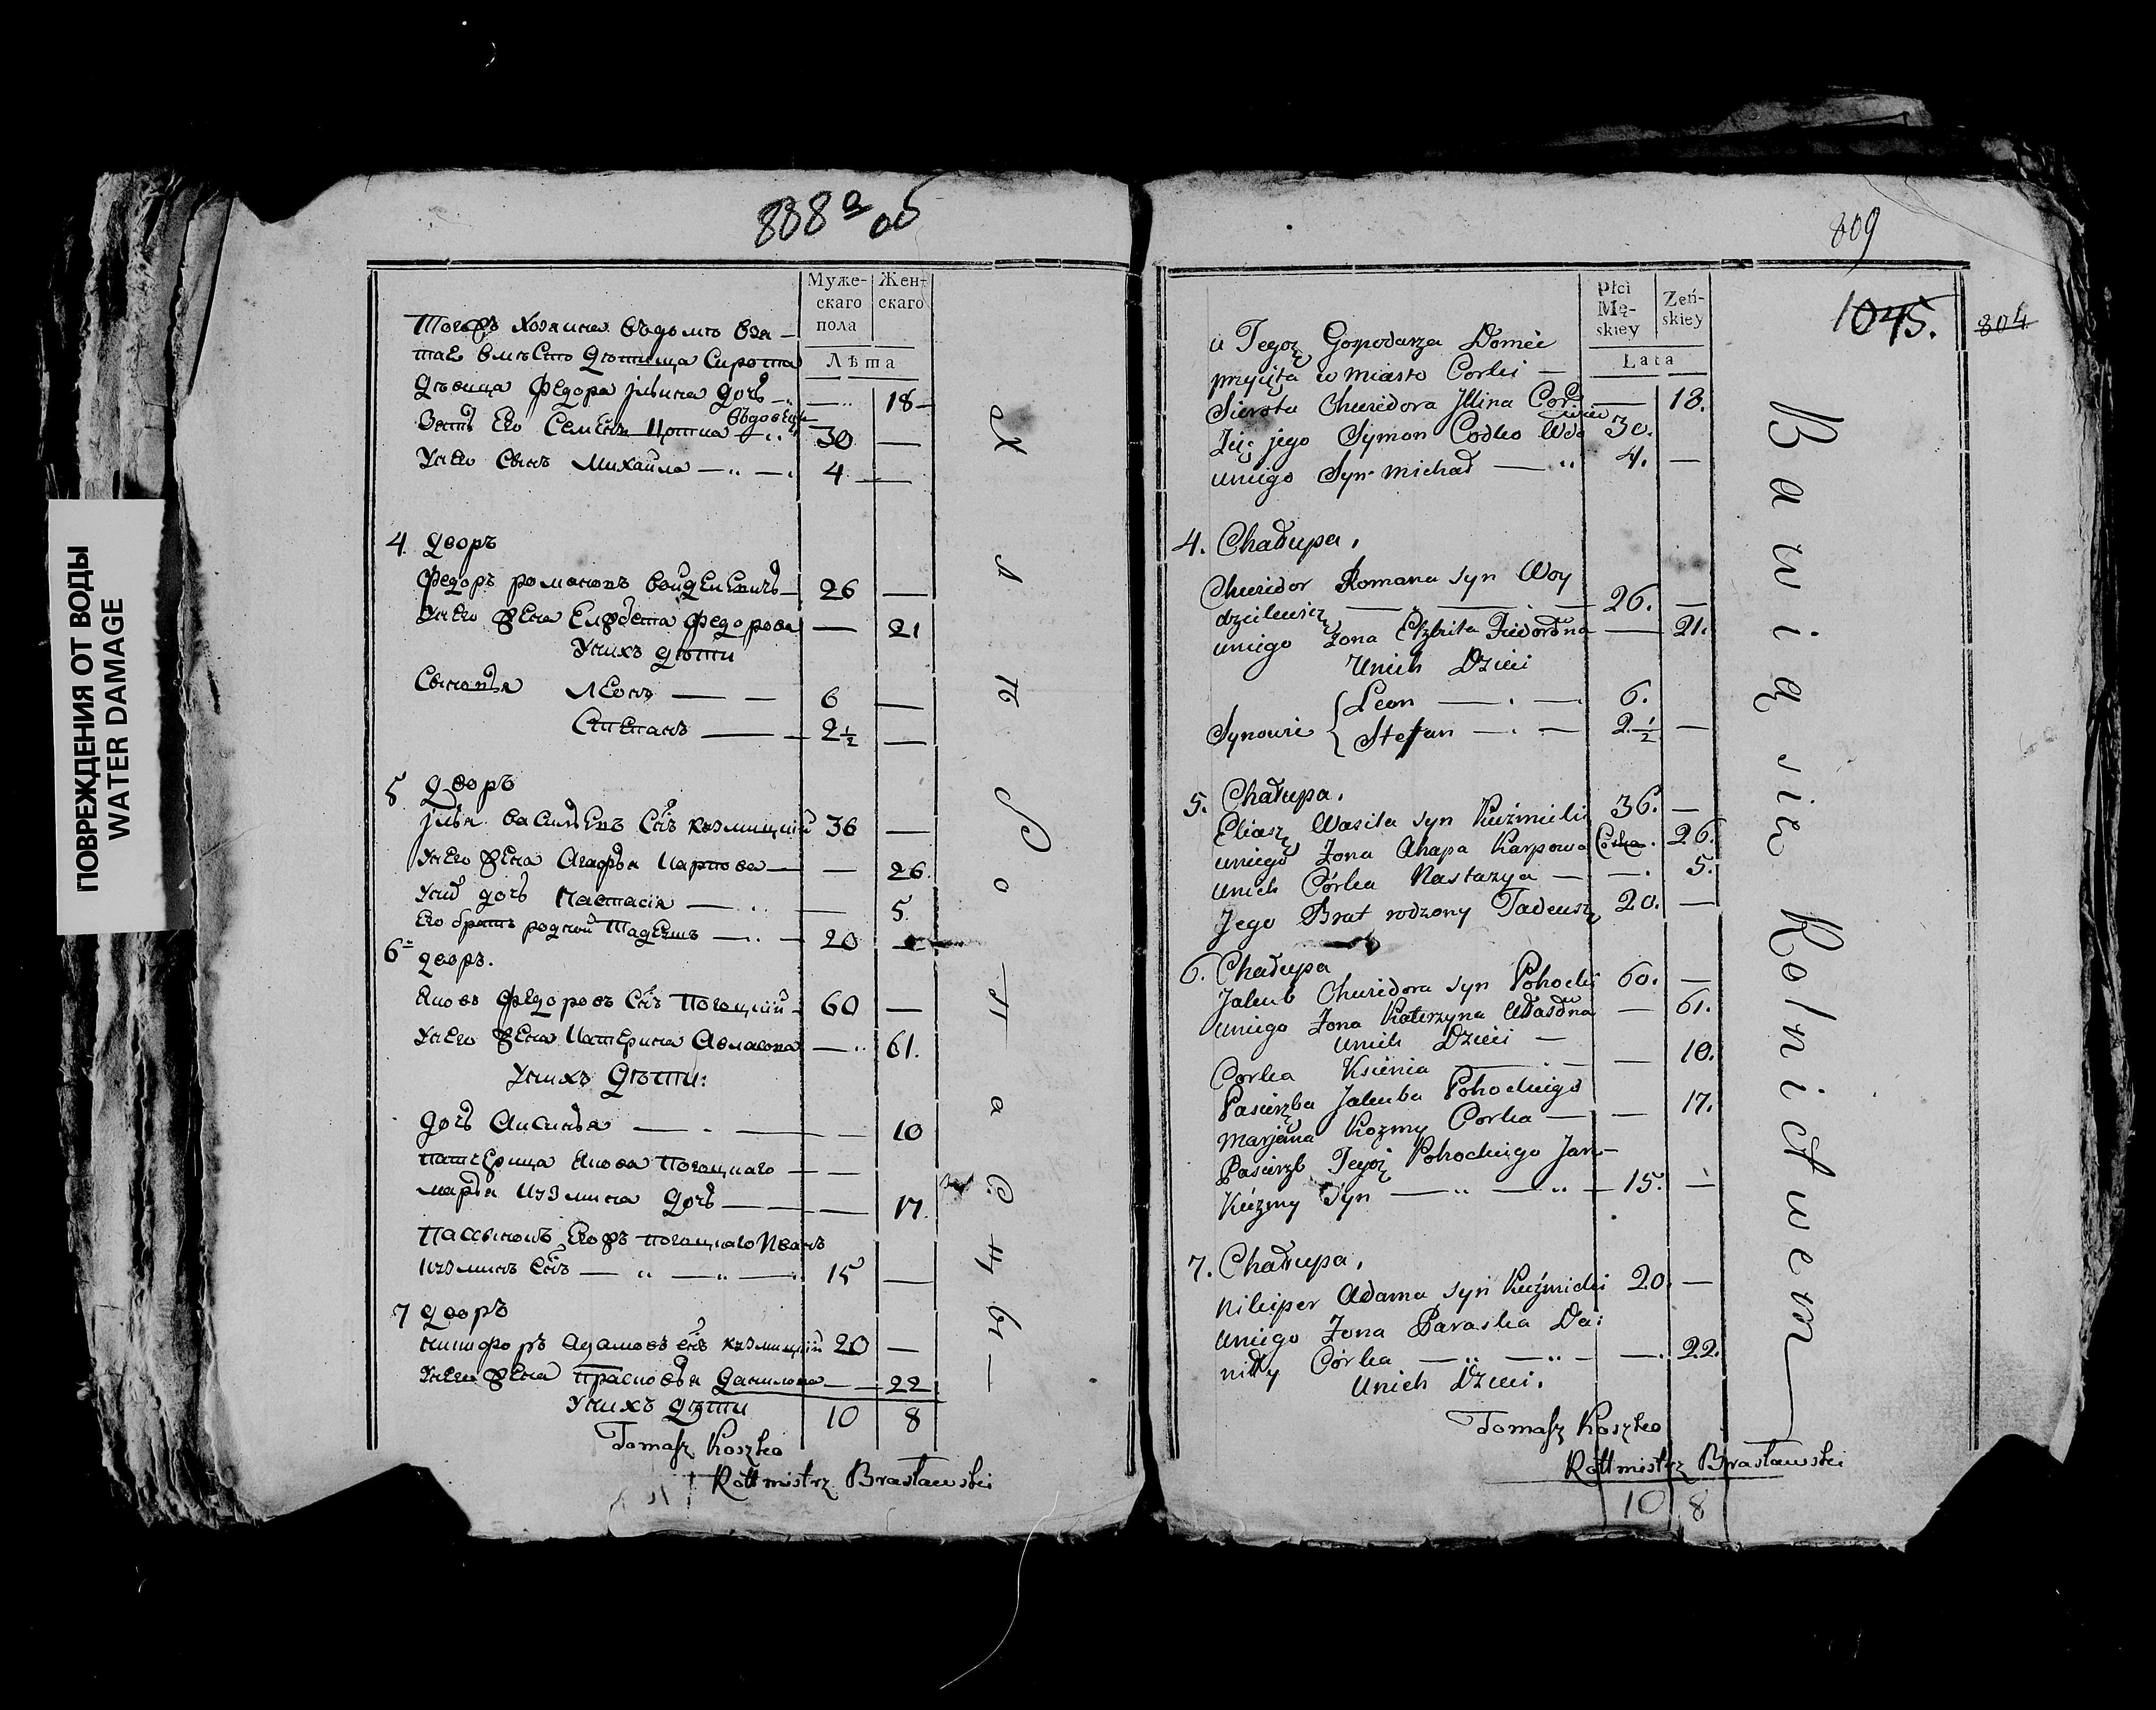 ПОВРЕЖДЕНИЯ ОТ ВОДЫ
WATER DAMAGE
888 а об
Муже-
скаго
пола
Жен-
скаго
Лѣта
Тогожъ хозяина въ домъ взя-
тая вмѣсто дѣтища Сирота
дѣвица Федора Ильина дочь — 18
Зять Его Семенъ вдовецъ 30 —
У него Сынъ Михайла — 4 —
4 дворъ
Федоръ романовъ 26 —
У него жена Елжбета Федорова — 21
У нихъ дѣти
Сыновья Леонъ — 6 —
Степанъ — 2½ —
5 дворъ
Илья васильевъ Снъ кузмицкий 36 —
У него жена Агафья Карпова — 26.
У них дочь Настасія — 5.
Его братъ родной Тадеушъ — 20 —
6 дворъ.
Яковъ Федоровъ Снъ Погоцкий 60 —
У него жена Катерина — 61.
У нихъ Дѣти:
дочь Аксинья — 10
патчерица Якова Погоцкаго —
марья Кузмина дочь — 17.
Пасынокъ Егожъ погоцкаго Иванъ
Кузминъ Снъ — 15 —
7 дворъ
никифоръ адамовъ снъ кузмицкий 20 —
У него жена Прасковья Данилова — 22
У нихъ дѣти 10 8
Tomasz Koszko
Rottmistrz Brasławski
809
1045.
804
Płci
Mę-
skiey
Zeń-
skiey
Lata
u Tegoż Gospodarza Domie
przyięta w miasto Corki —
Sierota Chwidora Illina Cor: — 18.
Zięć jego Symon Codko Wdowiec 30.
uniego Syn Michał — 4. —
4. Chałupa,
Chwidor Romana syn Woy
dzilewicz — 26. —
uniego Zona Elzbieta Fiedorowna — 21.
Unich Dzieci
Synowie Leon — 6.
Stefan — 2½ —
5. Chałupa,
Eliasz Wasila syn Kuźmicki 36. —
uniego Zona Ahapa Karpowa 26.
unich Córka Nastazya — 5.
Jego Brat rodzony Tadeusz 20. —
6. Chałupa
Jakub Chwidora syn Pohocki 60. —
uniego Zona Katerzyna — 61.
unich Dzieci —
Corka Ksienia — 10.
Pasierzba Jakuba Pohockiego
Marjana Kozmy Corka — 17.
Pasierzb Tegoż Pohockiego Jan —
Kuzmy Syn — 15. —
7. Chałupa,
Nikiper Adama syn Kuźmicki 20. —
uniego Zona Paraska Da:
niły Córka — 22.
Unich Dzieci.
Tomasz Koszko
Rottmistrz Brasławski
10 8
Bawią się Rolnictwem